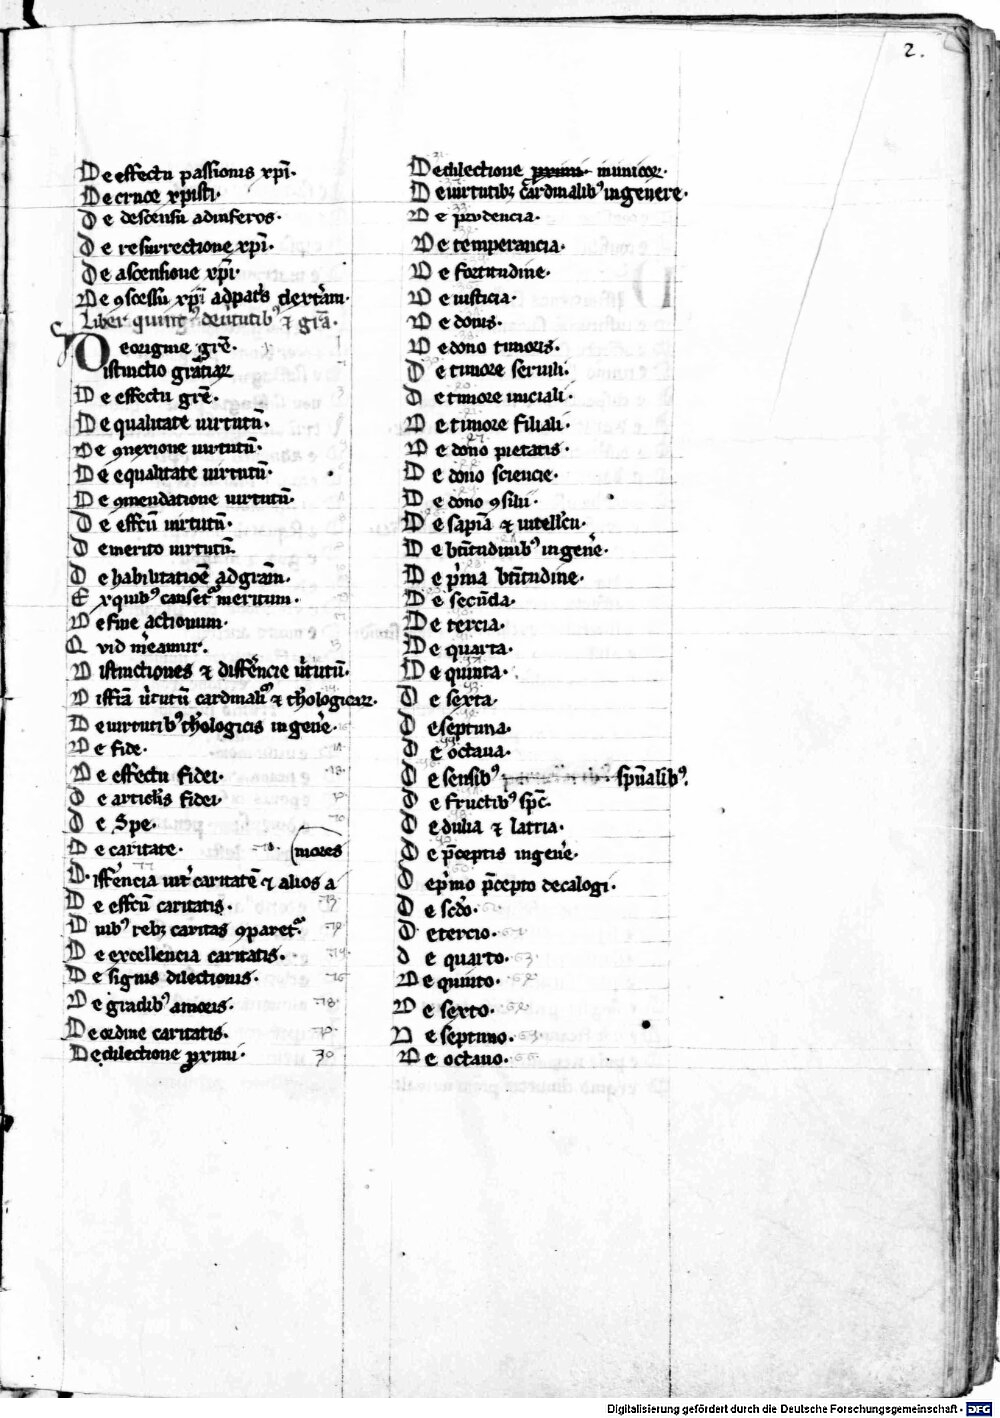 2.
De effectu passionis xp̄i.
De cruce xpisti.
De descensu ad inferos.
De resurrectione xp̄i.
De ascensione xp̄i.
De ꝯscessu xp̄i ad patris dexterā.
Liber quint᷒ de ūtutib᷒ ⁊ grā.
De origine grē.
Distinctio gratiaꝝ
De effectu grē.
De qualitate uirtutū.
De ꝯnexione uirtutū.
De equalitate uirtutū.
De ꝯmendatione uirtutū.
De effcū uirtutū.
De merito uirtutū.
De habilitatiōe ad grām.
Ex quib᷒ canset᷑ meritum.
De fine actionum.
Quid m̄eamur.
Distinctiones ⁊ differēcie ūtutū.
Diffīa ūtutū cardinaliū ⁊ theologicaꝝ.
De uirtutib᷒ theologicis in genēe.
De fide.
De effectu fidei.
De articlis fidei
De Spe.
De caritate. (mores
Differēcia int̄ caritatē ⁊ alios a
De effcū caritatis.
Quib᷒ rebꝫ caritas ꝯparet᷑.
De excellencia caritatis.
De signis dilectionis.
De gradib᷒ amoris.
De ordine caritatis.
De dilectione proximi. 30
De dilectione inimicoꝝ.
De uirtutibꝫ cardinalib᷒ in genere.
De prudencia.
De temperancia.
De fortitudine.
De iusticia.
De donis.
De dono timoris.
De timore seruili.
De timore iniciali.
De timore filiali.
De dono pietatis.
De dono sciencie.
De dono ꝯsilii.
De sapīa ⁊ intellcū.
De btītudinib᷒ in genēe.
De p̄ma btītudine.
De secūda.
De tercia.
De quarta.
De quinta.
De sexta.
De septima.
De octaua.
De sensib᷒ spūalib᷒.
De fructib᷒ spc̄.
De dulia ⁊ latria.
De p̄ceptis in genēe.
De p̄mo p̄cepto decalogi.
De scd̄o.
De tercio.
De quarto. 63
De quinto.
De sexto.
De septimo.
De octauo.
Digitalisierung gefördert durch die Deutsche Forschungsgemeinschaft - DFG